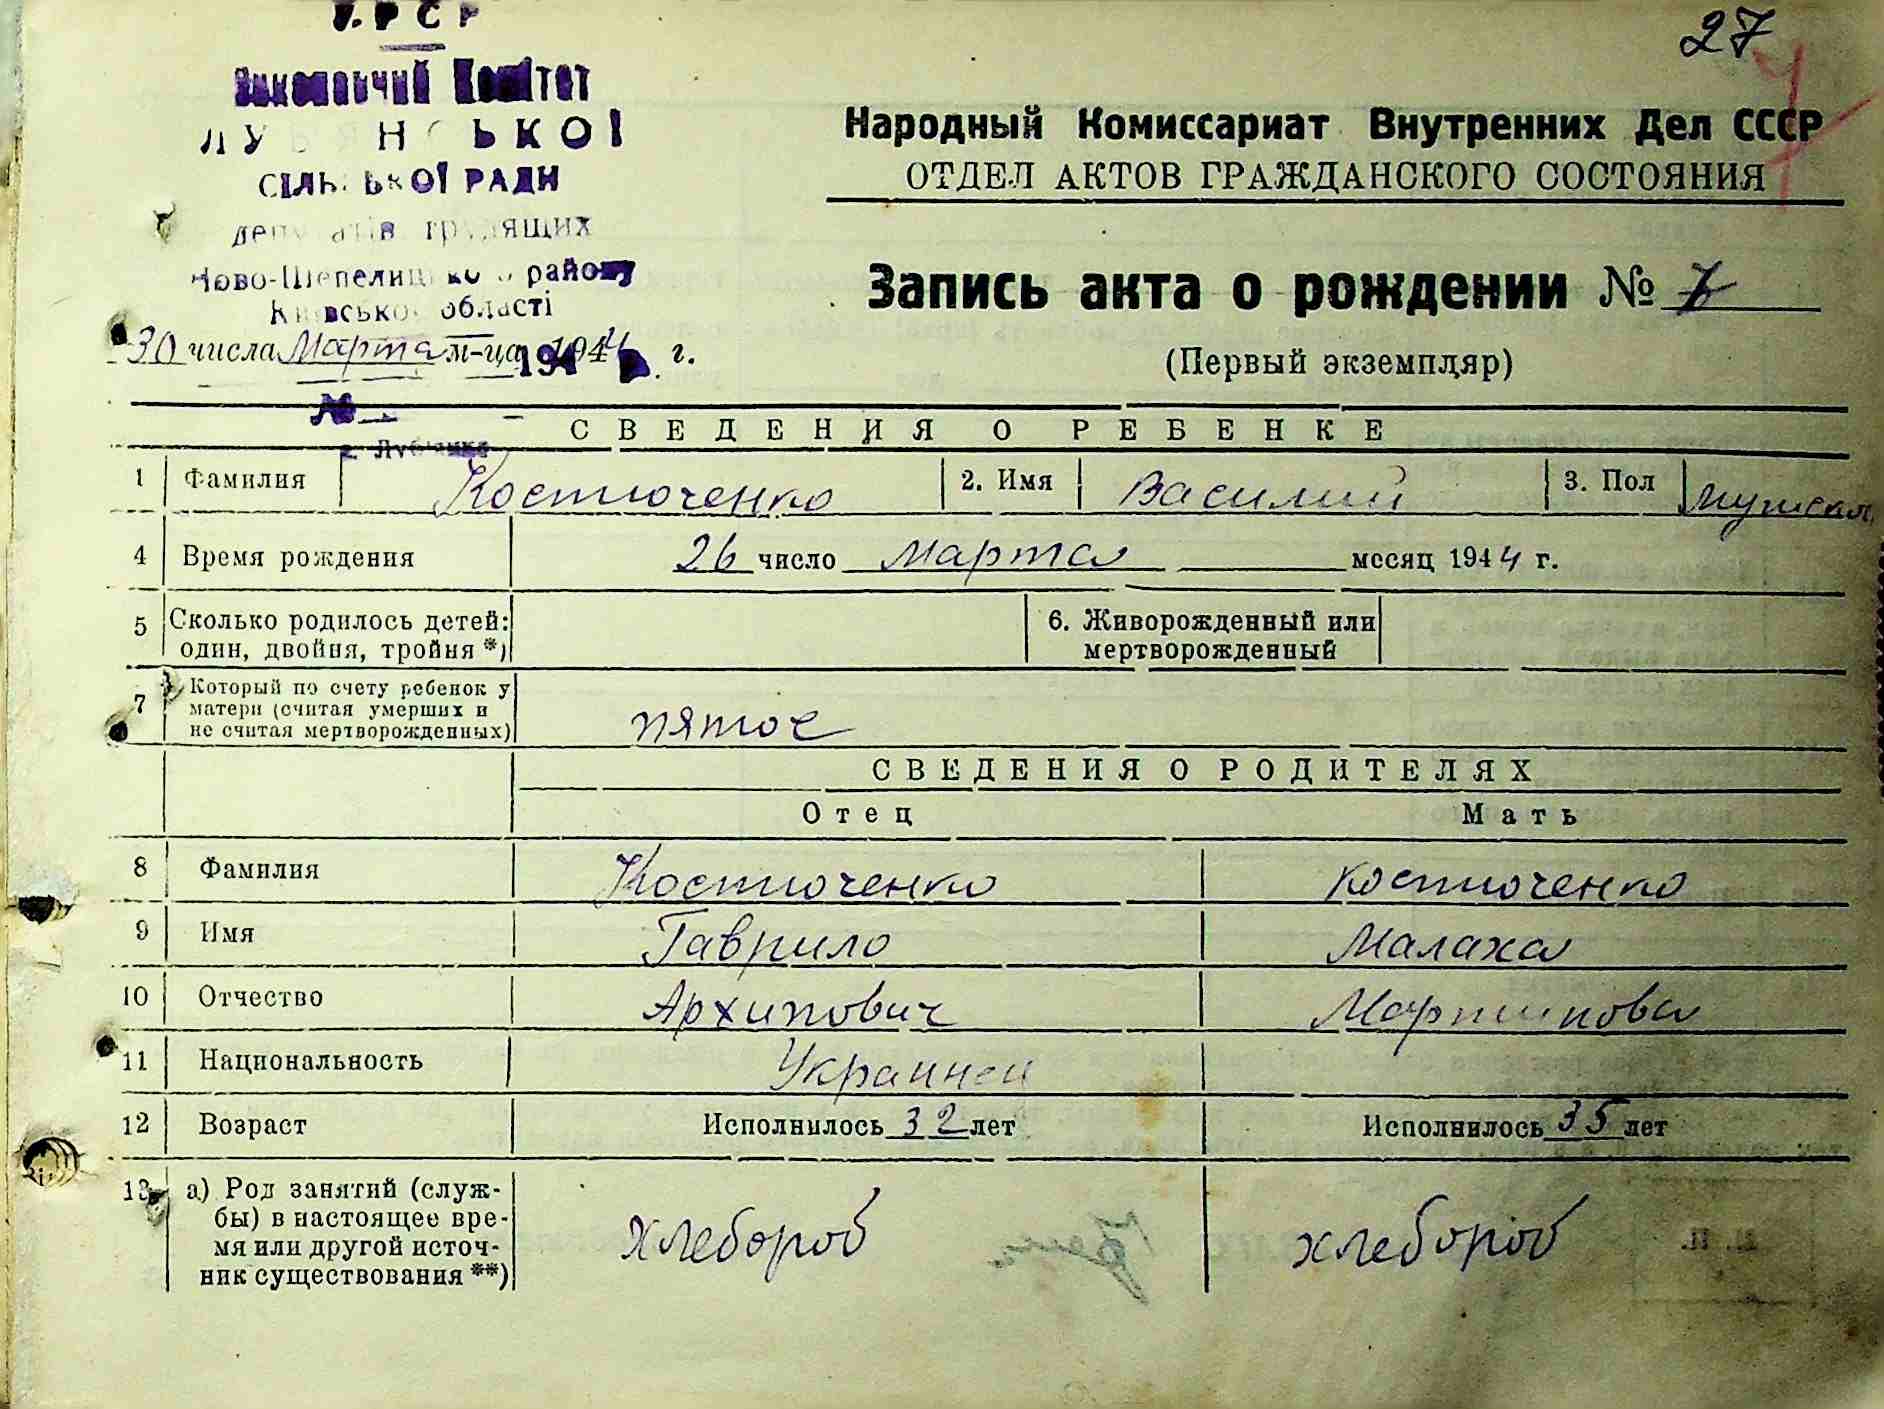 27
УРСР
Виконавчий Комітет
ЛУБ'ЯНСЬКОЇ
СІЛЬСЬКОЇ РАДИ
депутатів трудящих
Ново-Шепелицького району
Київської області
30 числа Марта м-ца 1944 г.
№
с. Луб'янка
Народный Комиссариат Внутренних Дел СССР
ОТДЕЛ АКТОВ ГРАЖДАНСКОГО СОСТОЯНИЯ
Запись акта о рождении № 7
(Первый экземпляр)
СВЕДЕНИЯ О РЕБЕНКЕ
1 Фамилия Костюченко 2. Имя Василий 3. Пол мужской
4 Время рождения 26 число Марта месяц 1944 г.
5 Сколько родилось детей: один, двойня, тройня *) 6. Живорожденный или мертворожденный
7 Который по счету ребенок у матери (считая умерших и не считая мертворожденных) пятое
СВЕДЕНИЯ О РОДИТЕЛЯХ
Отец Мать
8 Фамилия Костюченко Костюченко
9 Имя Гаврило Малаха
10 Отчество Архипович Мартиновa
11 Национальность Украинци
12 Возраст Исполнилось 32 лет Исполнилось 35 лет
13 а) Род занятий (службы) в настоящее время или другой источник существования **) хлебороб хлебороб